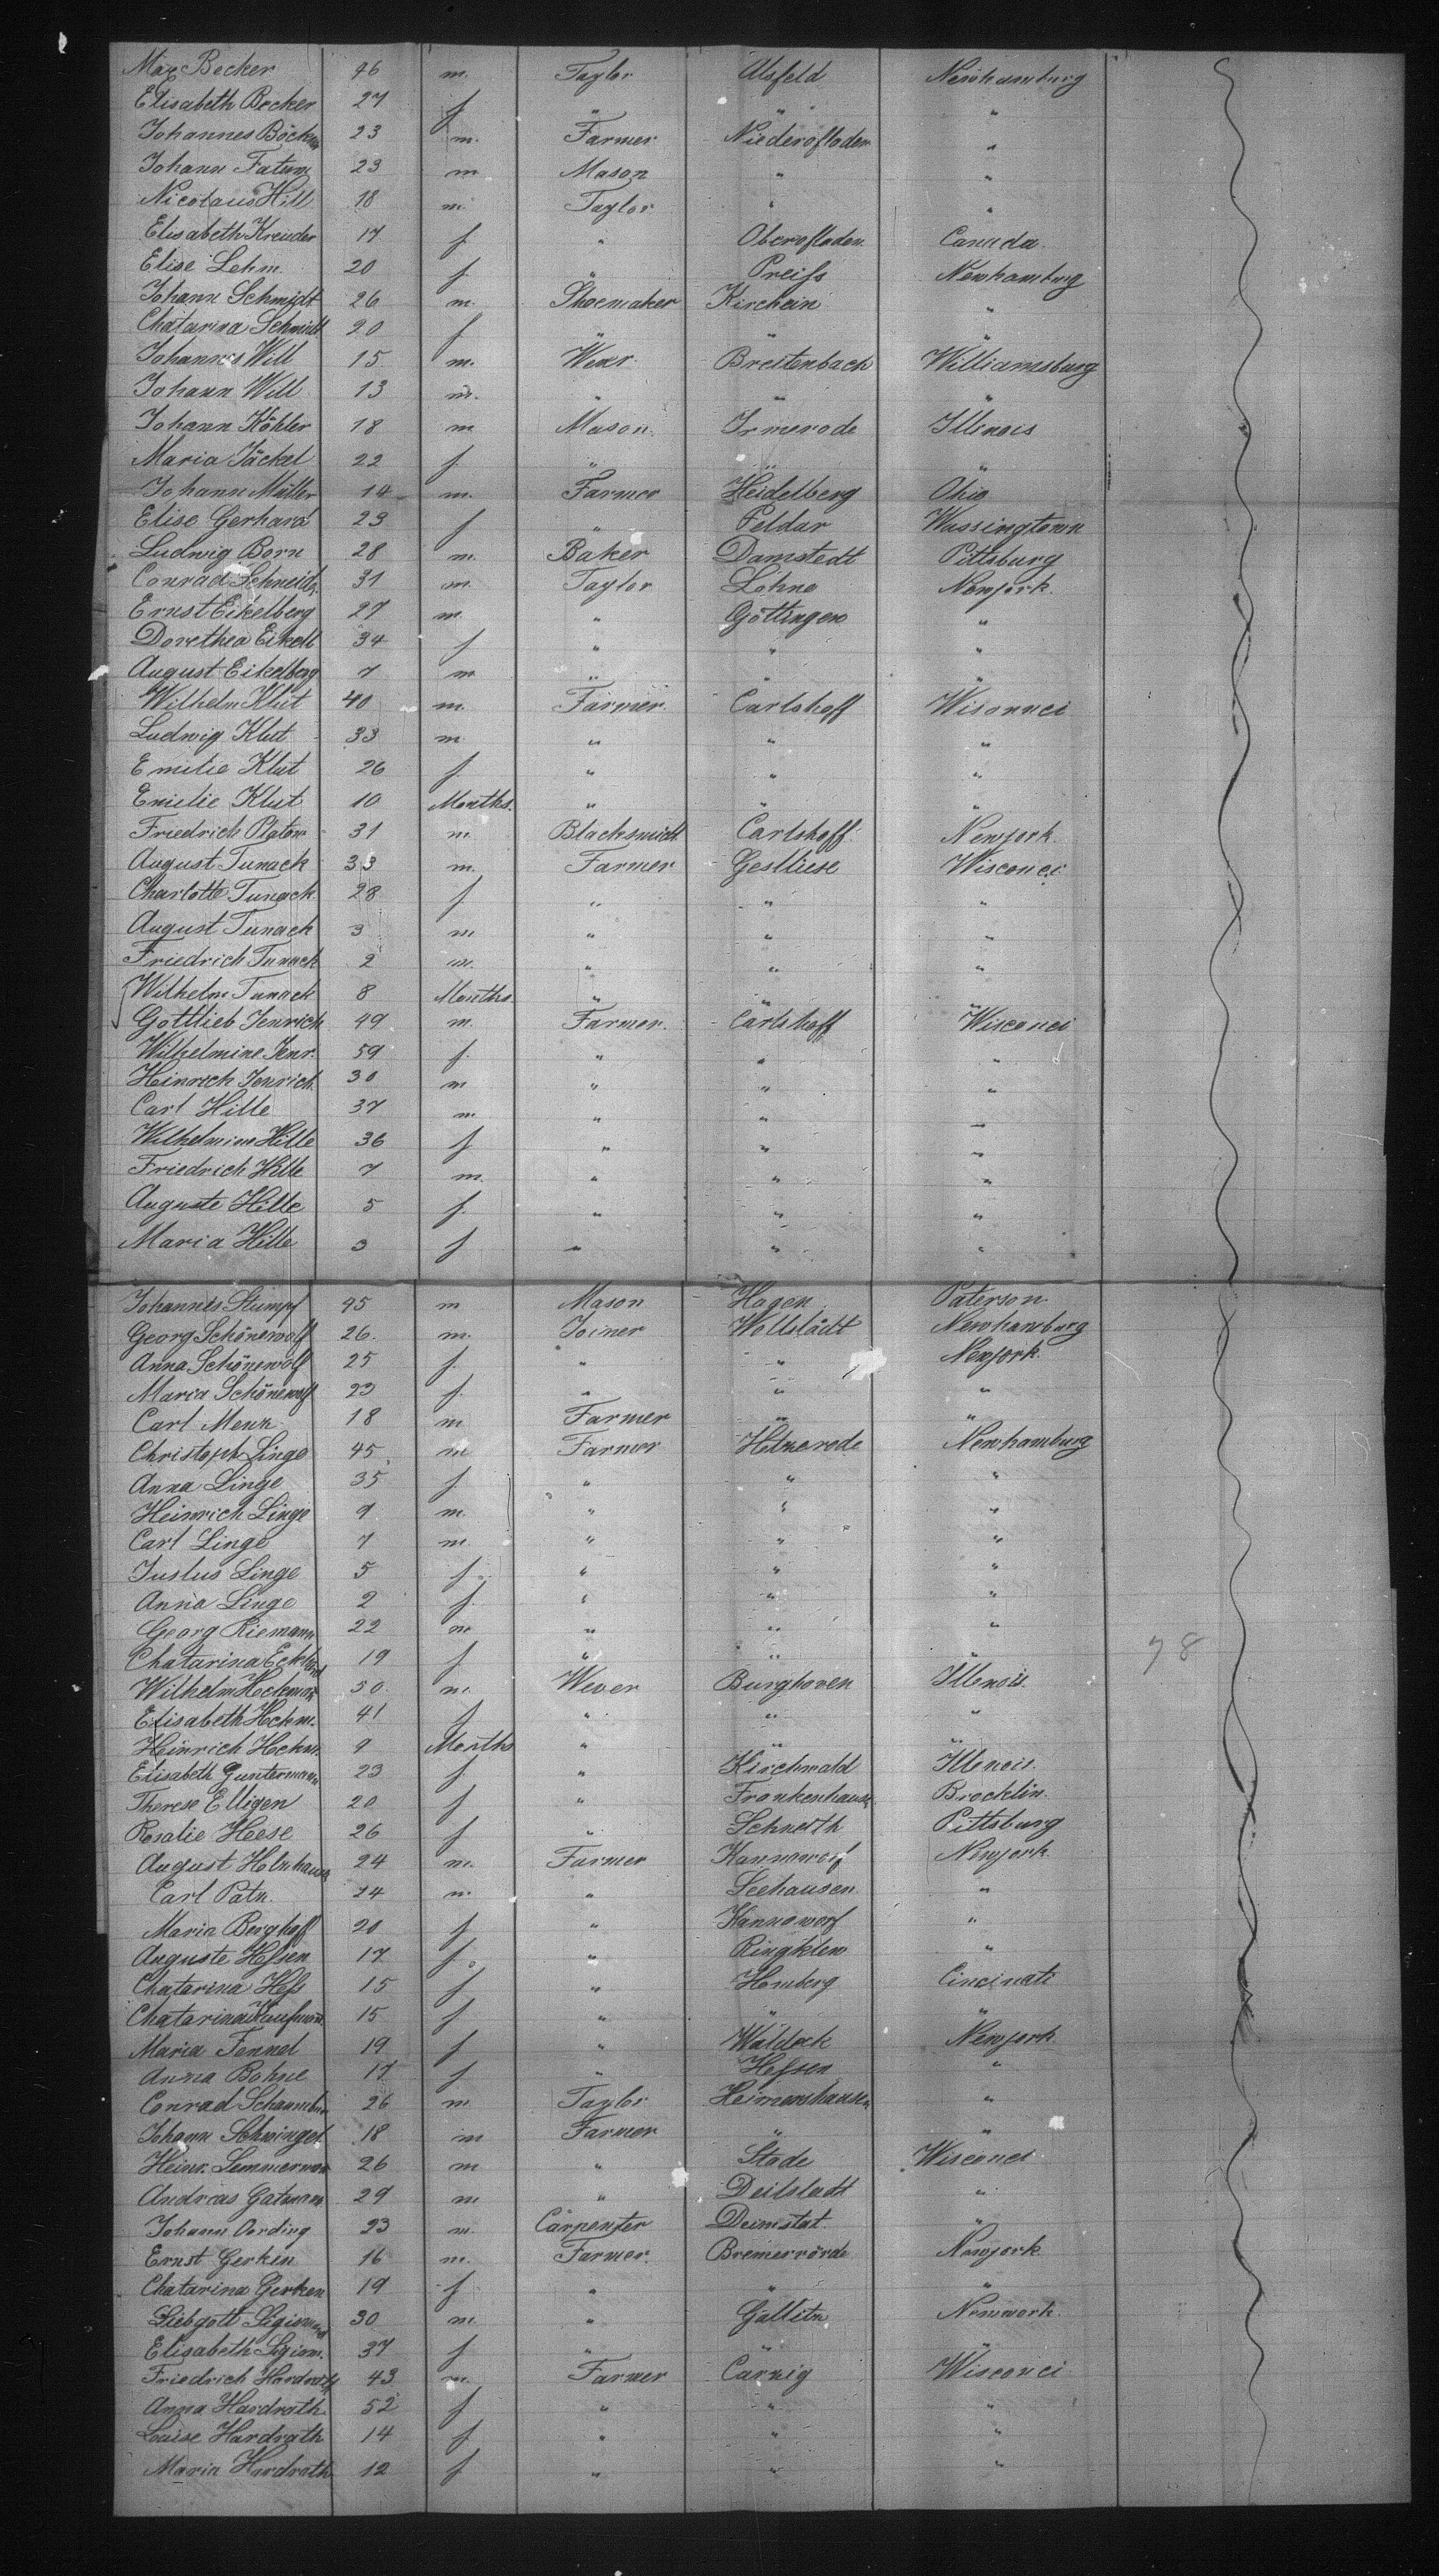 Max Becker 46 m. Taylor Alsfeld Newhamburg
Elisabeth Becker 27 f " " "
Johannes Böckm 23 m. Farmer Niederofloden "
Johann Fatum 23 m Mason " "
Nicolaus Hill 18 m. Taylor " "
Elisabeth Kreuder 17 f. " Oberofloden Canada
Elise Lehm. 20 f. " Preifs Newhamburg
Johann Schmidt 26 m. Shoemaker Kirchein "
Chatarina Schmidt 20 f " " "
Johannes Will 15 m. Wewr Breitenbach Williamsburg
Johann Will 13 m. " " "
Johann Köhler 18 m Mason Irmerode Illenois
Maria Jäckel 22 f. " " "
Johann Müller 14 m. Farmer Heidelberg Ohio
Elise Gerhard 23 f " Peldar Wassingtown
Ludwig Born 28 m. Baker Damstedt Pittsburg
Conrad Schneid. 31 m. Taylor Löhne Newjork.
Ernst Eikelberg 27 m. " Göttingen "
Dorethea Eikelb 34 f " " "
August Eikelberg 7 m " " "
Wilhelm Klut 40 m. Farmer. Carlshoff Wisonnci
Ludwig Klut 33 m " " "
Emilie Klut 26 f " " "
Emilie Klut 10 Months. " " "
Friedrich Platow 31 m. Blacksmidt Carlshoff Newjork.
August Tunack 33 m. Farmer Gestliese Wisconci
Charlotte Tunack 28 f " " "
August Tunack 3 m " " "
Friedrich Tunack 2 m. " " "
Wilhelm Tunack 8 Months " " "
Gottlieb Jenrich 49 m. Farmer. Carlshoff Wisconci
Wilhelmine Jenr. 59 f. " " "
Heinrich Jenrich. 30 m " " "
Carl Hille 37 m. " " "
Wilhelmine Hille 36 f " " "
Friedrich Hille 7 m. " " "
Auguste Hille 5 f. " " "
Maria Hille 3 f " " "
Johannes Stumpf 45 m Mason Hagen Paterson
Georg Schönewolf 26. m. Joiner Wollstädt Newhamburg
Anna Schönewolf 25 f. " " Newjork.
Maria Schönewolf 23 f. " " "
Carl Menz 18 m Farmer " "
Christoph Linge 45 m Farmer Hitzerode Newhamburg
Anna Linge 35 f " " "
Heinrich Linge 9 m. " " "
Carl Linge 7 m. " " "
Justus Linge 5 f. " " "
Anna Linge 2 f. " " "
Georg Riemann 22 m " " "
Chatarina Eckhard 19 f " " " 78
Wilhelm Heckmann 50 m. Wever Burghoven Illenois.
Elisabeth Heckm. 41 f " " "
Heinrich Heckm. 9 Months " " "
Elisabeth Guntermann 23 f " Kirchwald Illenois.
Therese Elligen 20 f " Frankenhausen Brocklin.
Rosalie Heese 26 f " Schnerth Pittsburg
August Holzhausen 24 m. Farmer Kannaworf Newjork
Carl Patz. 24 m. " Seehausen "
Maria Berghoff 20 f " Kannaworf "
Auguste Hessen 17 f. " Ringklew "
Chatarina Hess 15 f " Homberg Cincinati
Chatarina Kaufmann 15 f " " "
Maria Fennel 19 f " Waldeck Newjork
Anna Bohne 17 f " Hessen "
Conrad Schaumbur 26 m Taylor Heimershausen "
Johann Schwingel 18 m Farmer " "
Heinr. Lemmermann 26 m " Stade Wisconci
Andreas Gatmann 29 m " Deilstadt "
Johann Oerding 23 m. Carpenter Deimstat. "
Ernst Gerken 16 m. Farmer. Bremervörde Newjork
Chatarina Gerken 19 f " " "
Liebgott Sigismund 30 m. " Gallitz Newwork.
Elisabeth Sigism. 37 f " " "
Friedrich Hardrath 43 m. Farmer Carnig Wisconci
Anna Hardrath 52 f " " "
Louise Hardrath 14 f " " "
Maria Hardrath 12 f " " "